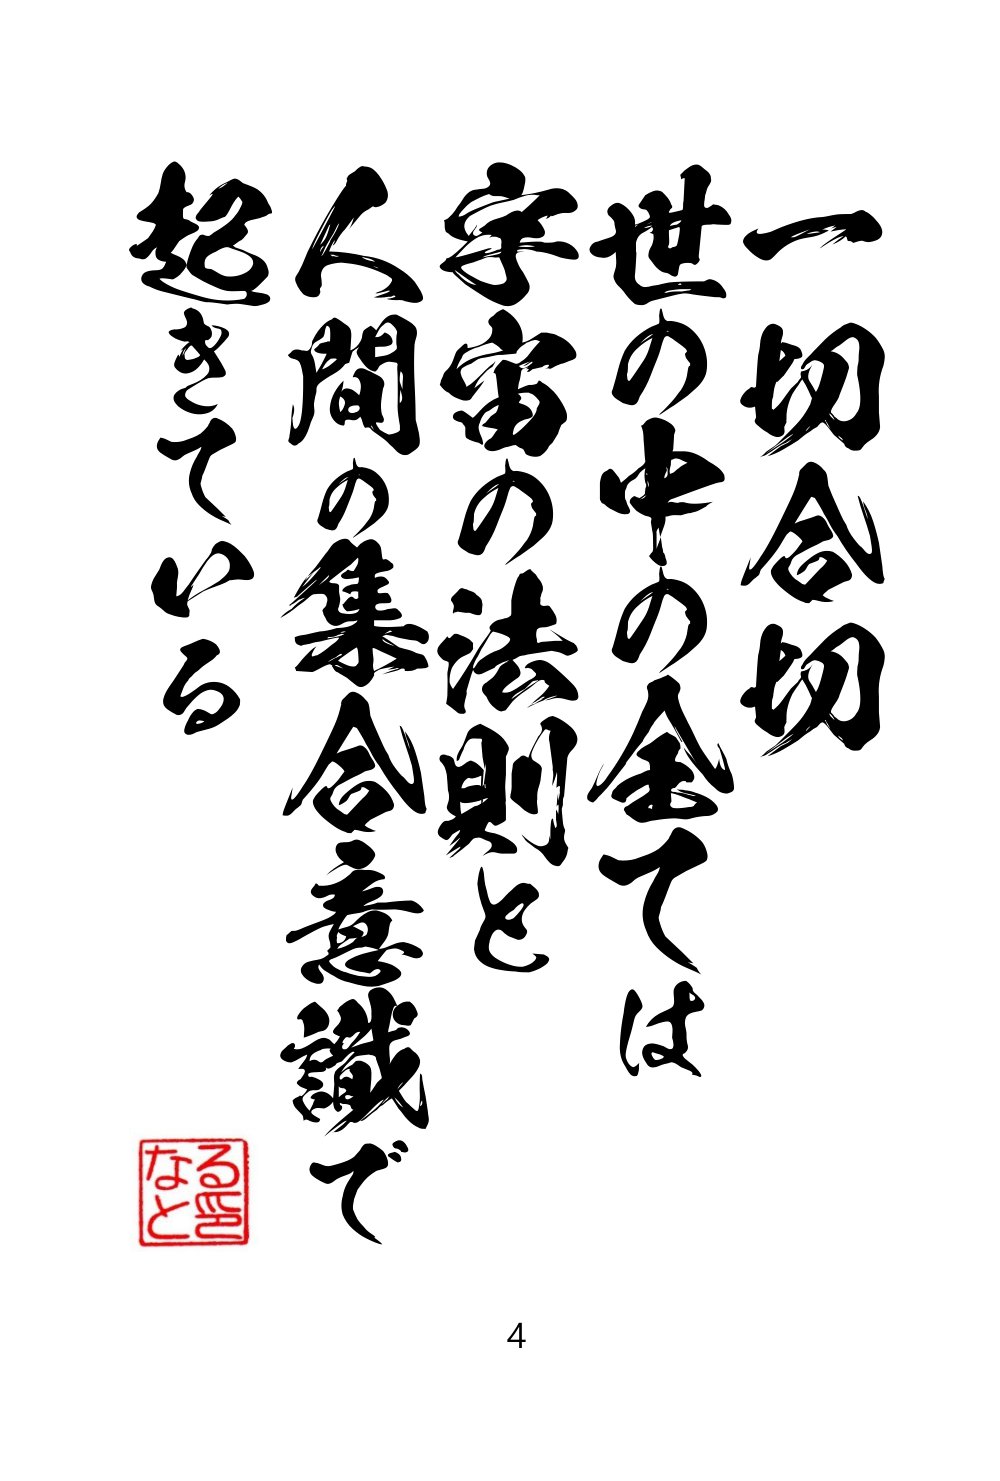 一切合切
世の中の全ては
宇宙の法則と
人間の集合意識で
起きている
なる
と印
4